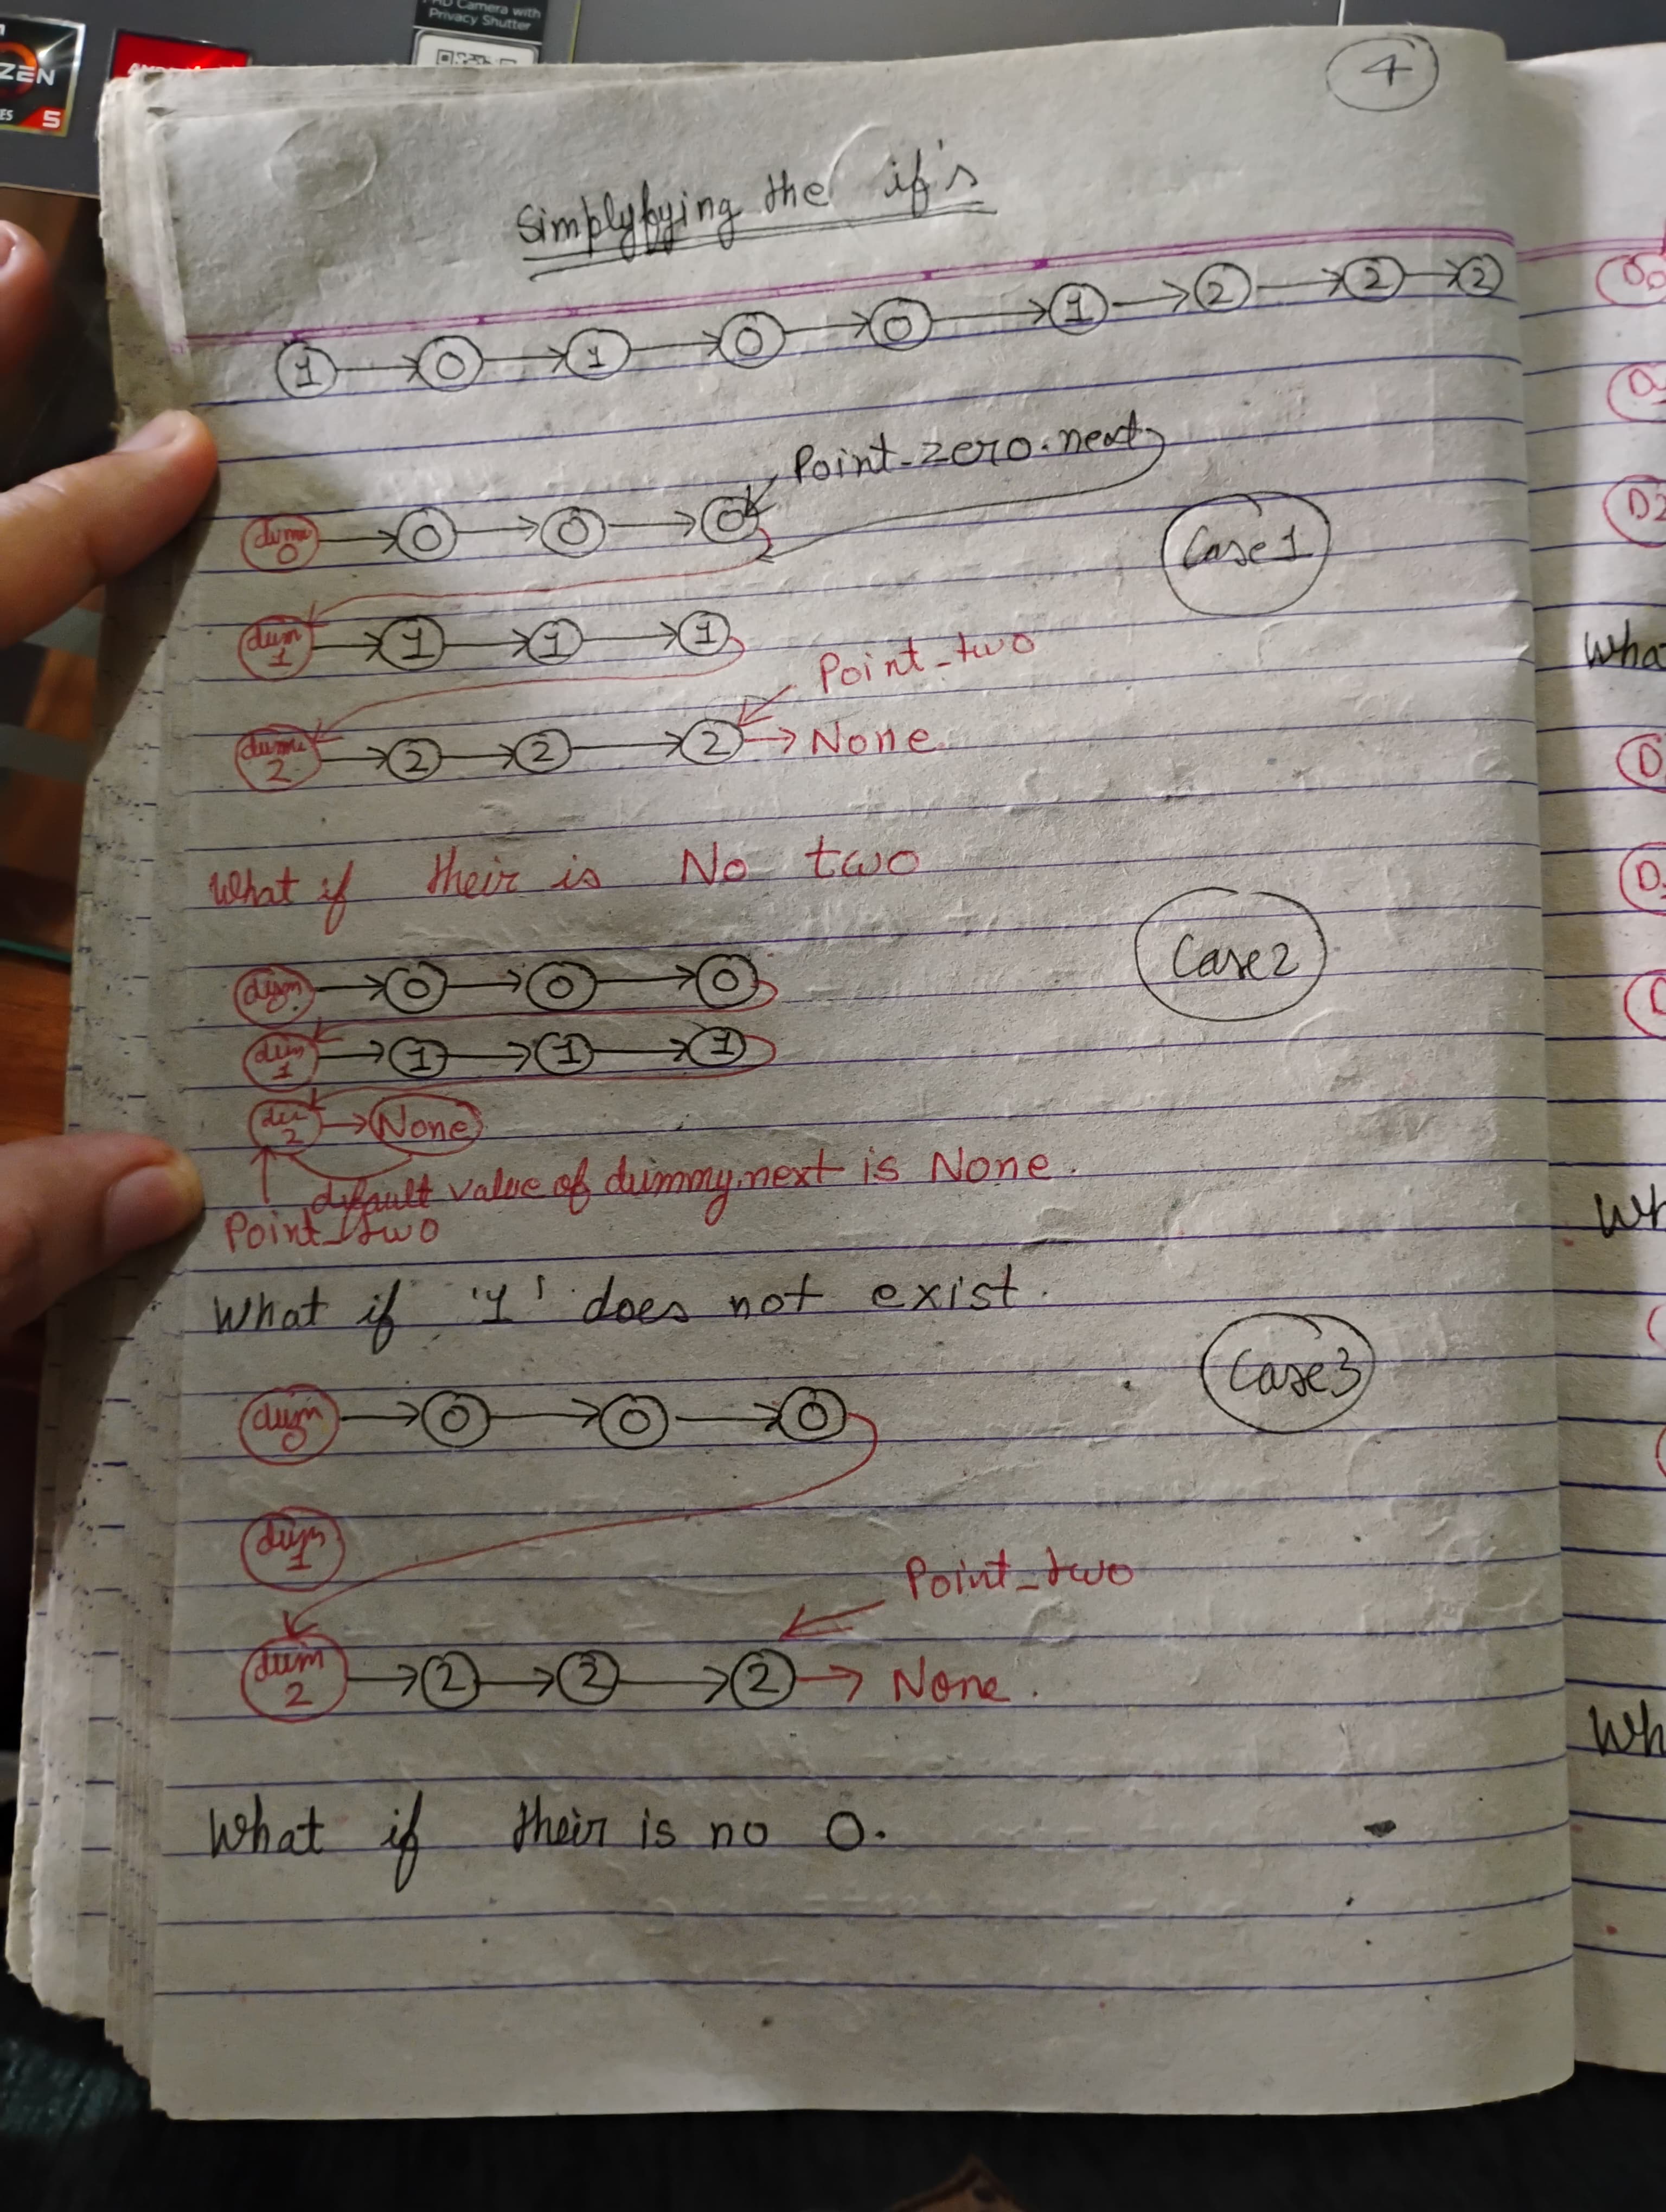 HD Camera with
Privacy Shutter
ZEN
5
4
Simplyfying the if's
1 → 0 → 1 → 0 → 0 → 1 → 2 → 2 → 2
Point_zero.next
dum 0 → 0 → 0 → 0
Case 1
dum 1 → 1 → 1 → 1
Point_two
dum 2 → 2 → 2 → 2 → None
What if their is No two
dum 0 → 0 → 0 → 0
Case 2
dum 1 → 1 → 1 → 1
du 2 → None
default value of dummy.next is None.
Point_two
What if '1' does not exist.
Case 3
dum 0 → 0 → 0 → 0
dum 1
Point_two
dum 2 → 2 → 2 → 2 → None.
What if their is no 0.
D2
Wha
D
D
Wh
Wh